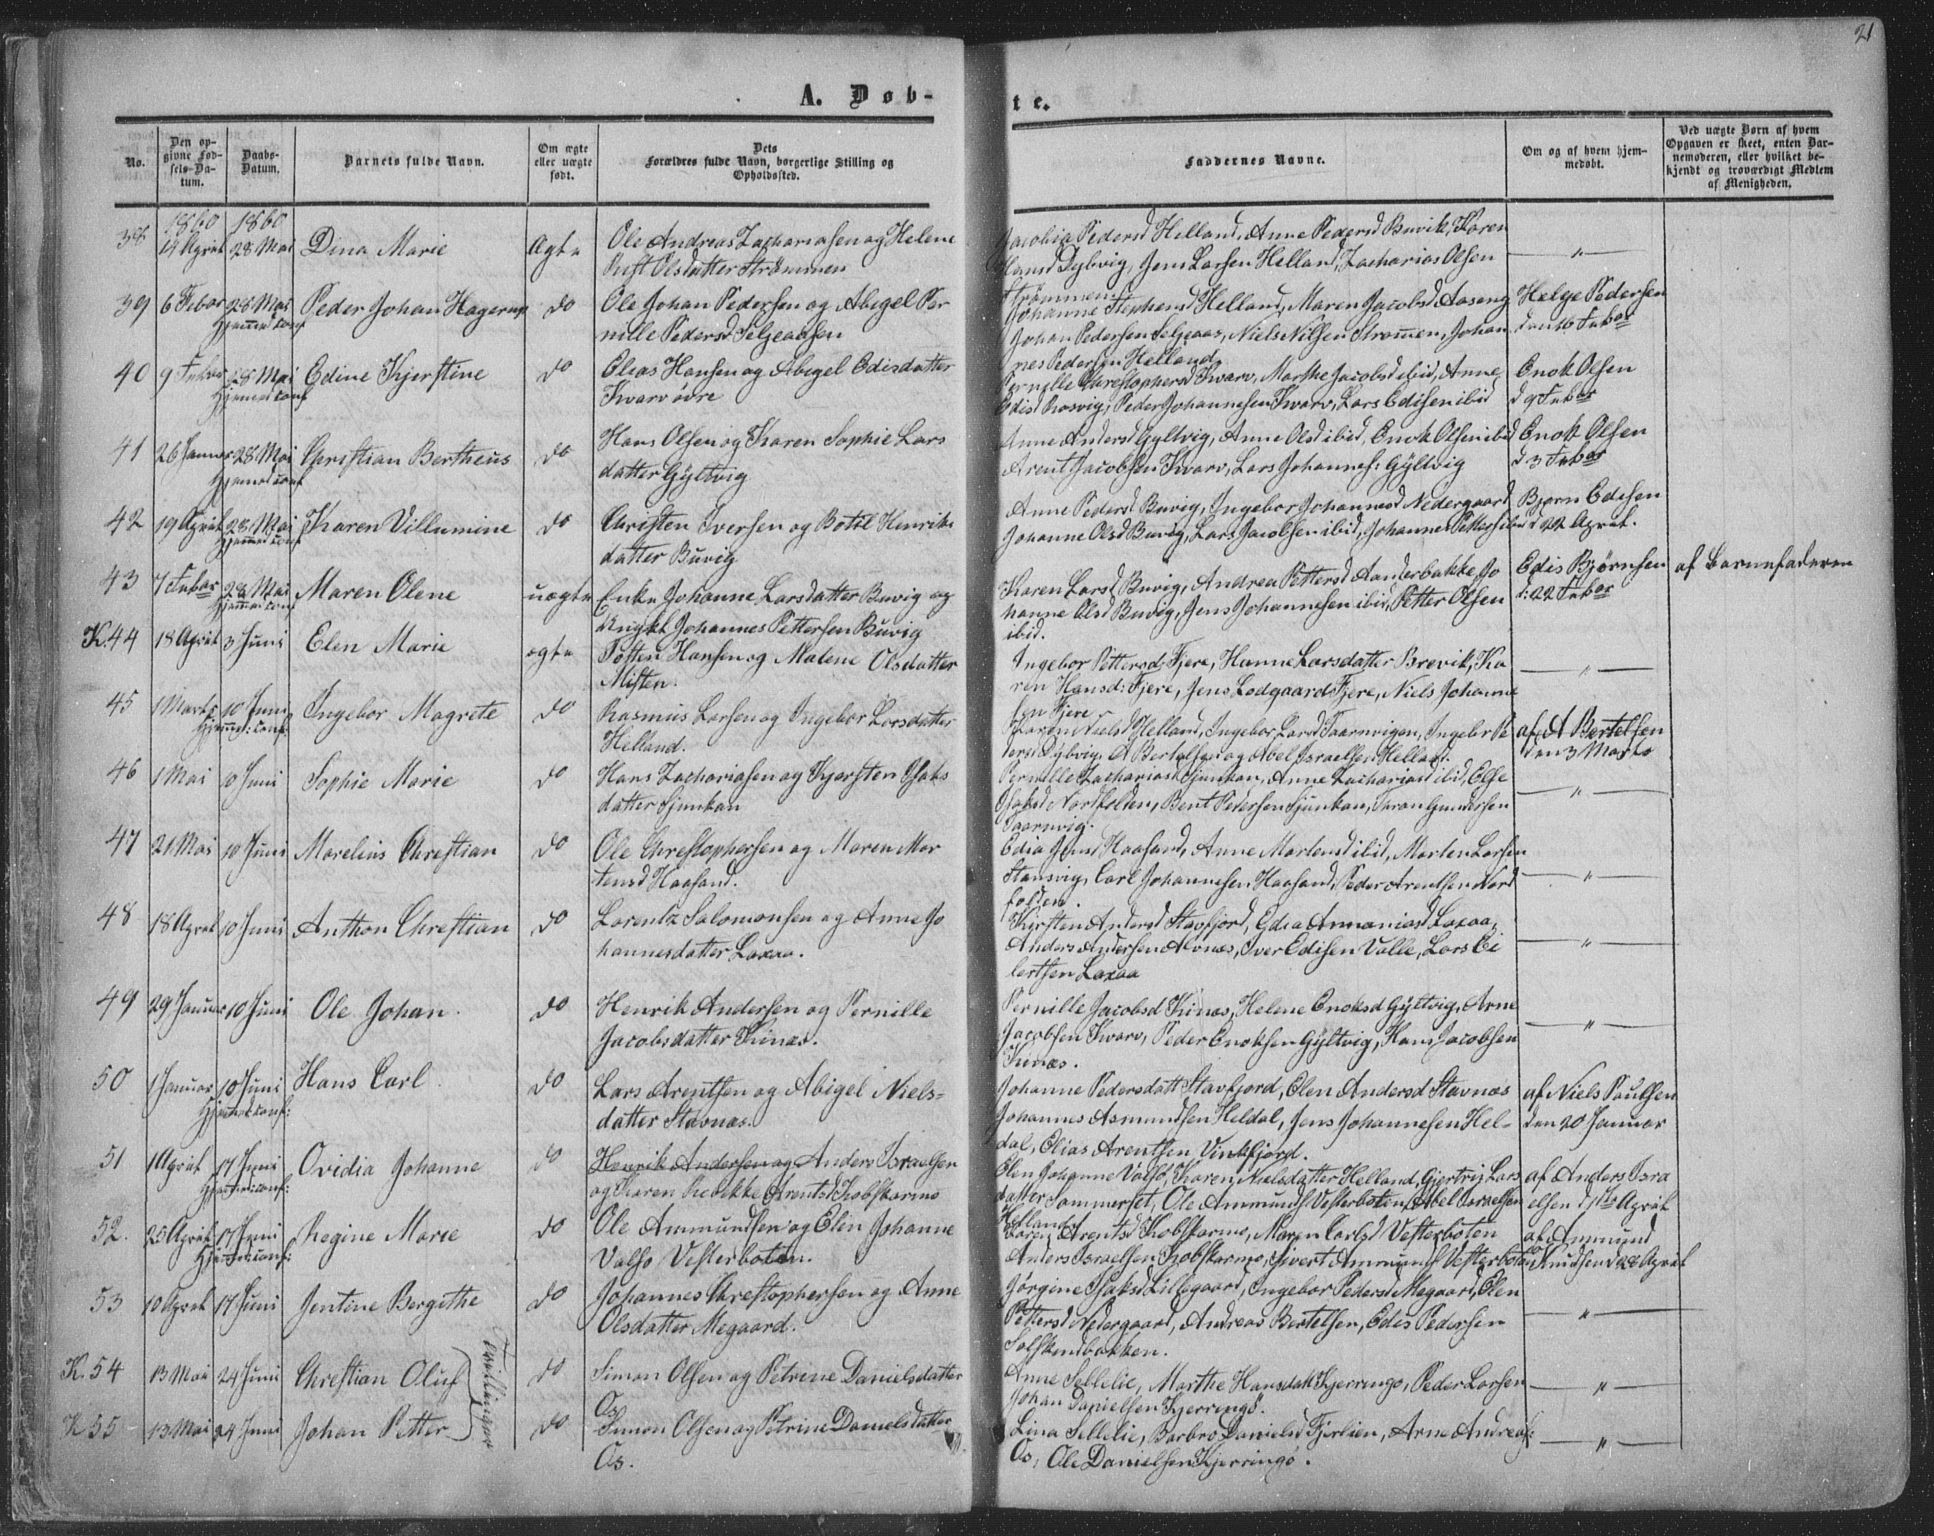 21
A. Døb-
te.
No.
Den op-
givne Fød-
sels-Da-
tum.
Daabs-
Datum.
Barnets fulde Navn.
Om ægte
eller uægte
født.
Dets
Forældres fulde Navn, borgerlige Stilling og
Opholdssted.
Faddernes Navne.
Om og af hvem hjem-
medøbt.
Ved uægte Børn af hvem
Opgaven er skeet, enten Bar-
nemoderen, eller hvilket be-
kjendt og troværdigt Medlem
af Menigheden.
1860 1860
38 14 April 28 Mai Dina Marie Ægte Ole Andreas Zachariasen og Helene
Rust Olsdatter Strømmen
Jacobia Pedersd Helland, Anne Pedersd Buvik, Karen
Hansd Dybvig, Jens Larsen Helland, Zacharias Olsen
Strømmen
— " —
39 6 Febar 28 Mai Peder Johan Hagerup do Ole Johan Pedersen og Abigel Per
Hjemmed conf nille Pedersd Seljeaasen
Johanne Stephensd Helland, Maren Jacobsd Aaseng
Johan Pedersen Seljeaas, Niels Nilsen Strømmen, Johan
nes Pedersen Helland
Helge Pedersen
den 16 Febar
40 9 Febar 28 Mai Edine Kjerstine do Elias Hansen og Abigel Edisdatter
Hjemmed conf Kvarv øvre
Pernille Christophersd Kvarv, Marthe Jacobsd ibid, Anne
Edisd Rosvig, Peder Johannesen Kvarv, Lars Edisen ibid
Enok Olsen
d 9 Febar
41 26 Januar 28 Mai Christian Bertheus do Hans Olsen og Karen Sophie Lars
Hjemmed conf datter Gyltvig
Anne Andersd Gyltvig, Anne Olsd ibid, Enok Olsen ibid
Arent Jacobsen Kvarv, Lars Johannes: Gyltvig
Enok Olsen
d 3 Febar
42 19 April 28 Mai Karen Villumine do Christen Iversen og Botil Henriks
Hjemmed conf datter Buvig
Anne Pedersd Buvig, Ingebor Johannesd Nedergaard
Johanne Olsd Buvig, Lars Jacobsen ibid, Johannes Petters ibid
Bjørn Edisen
d 22 April.
43 7 Febar 28 Mai Maren Olene uægte Enke Johanne Larsdatter Buvig og
Hjemmed conf Ungkl Johannes Pettersen Buvig
Karen Larsd Buvig, Andrea Pettersd Aanderbakke, Jo
hanne Olsd Buvig, Jens Johannesen ibid, Petter Olsen
ibid.
Edis Bjørnsen
d: 22 Febar
af Barnefaderen
K. 44 18 April 3 Juni Elen Marie ægte Tosten Hansen og Malene Olsdatter
Misten.
Ingebor Pettersd Fjere, Hanne Larsdatter Brevik, Ka
ren Hansd: Fjere, Jens Lodgaard Fjere, Niels Johanne
sen Fjere
— " —
45 1 Marts 10 Juni Ingebor Magrete do Rasmus Larsen og Ingebor Larsdatter
Hjemmed: conf. Helland.
Karen Nielsd Helland, Ingebor Larsd Taarnvigen, Ingebor Pe
dersd Dybvig, A Bertelsen og Abel Israelsen Helland.
af A Bertelsen
den 3 Marts
46 1 Mai 10 Juni Sophie Marie do Hans Zachariasen og Kjersten Isaks
datter Sjunkan
Pernille Zachariasd Sjunkan, Anne Zachariasd ibid, Else
Isaksd Nordfolden, Bent Pedersen Sjunkan, Svan Gundersen
Taarnvig.
— " —
47 21 Mai 10 Juni Marelius Christian do Ole Christophersen og Maren Mor
tensd Haasand.
Edia Jensd Haasand, Anne Mortensd ibid, Morten Larsen
Stansvig, Carl Johannesen Haasand, Peder Arentsen Nord
folden.
— " —
48 18 April 10 Juni Anthon Christian do Lorentz Salomonsen og Anne Jo
hannesdatter Laxaa.
Kjersten Andersd Stavfjord, Edia Annaniasd Laxaa,
Anders Andersen Alvnæs, Iver Edisen Valle, Lars Ei
lertsen Laxaa
— " —
49 29 Januar 10 Juni Ole Johan. do Henrik Andersen og Pernille
Jacobsdatter Kinæs.
Pernille Jacobsd Kinæs, Helene Enoksd Gyltvig, Arne
Jacobsen Kvarv, Peder Enoksen Gyltvig, Hans Jacobsen
Kinæs.
— " —
50 1 Januar 10 Juni Hans Carl do Lars Arentsen og Abigel Niels-
Hjemmed conf: datter Stavnæs.
Johanne Pedersdatt Stavfjord, Elen Andersd Stavnæs
Johannes Asmundsen Heldal, Jens Johannesen Hel-
dal, Elias Arentsen Vinkfjord.
af Niels Paulsen
den 20 Januar
51 1 April 17 Juni Ovidia Johanne do Henrik Andersen og Anders Israelsen
Hjemmed: conf: og Karen Rebekke Arentsd Kobskarmo
Elen Johanne Valsø, Karen Nielsdatter Helland, Gjertrig Lars
datter Sommerset, Ole Ammunds Vesterboten, Abel Israelsen
Helland
af Anders Isra
elsen d 1ste April
52. 25 April 17 Juni Regine Marie do Ole Ammundsen og Elin Johanne
Hjemmed: conf: Valsø Vesterboten.
Karen Arentsd Kobskarmo, Maren Carlsd Vesterboten
Anders Israelsen Kobskarmo, Sivert Ammunds Vesterboten
af Ammund
Knudsen d 28 April
53 10 April 17 Juni Jentine Bergithe do Johannes Christophersen og Anne
Olsdatter Megaard.
Jørgine Isaksd Lillegaard, Ingebor Pedersd Megaard, Elen
Pettersd Nedergaard, Andreas Bertelsen, Edis Pedersen
Solskinsbakken.
— " —
K. 54 13 Mai 24 Juni Christian Oluf do Simon Olsen og Petrine Danielsdatter
Os
Tvillinger
Anne Sellelie, Marthe Hansdatt Kjerringø, Peder Larsen
Johan Danielsen Kjerringø.
— " —
K 55 13 Mai 24 Juni Johan Petter do Simon Olsen og Petrine Danielsdatter
Os.
Lina Sellelie, Barbro Danielsd Fjerlien, Arne Andreas:
Os, Ole Danielsen Kjerringø.
— " —